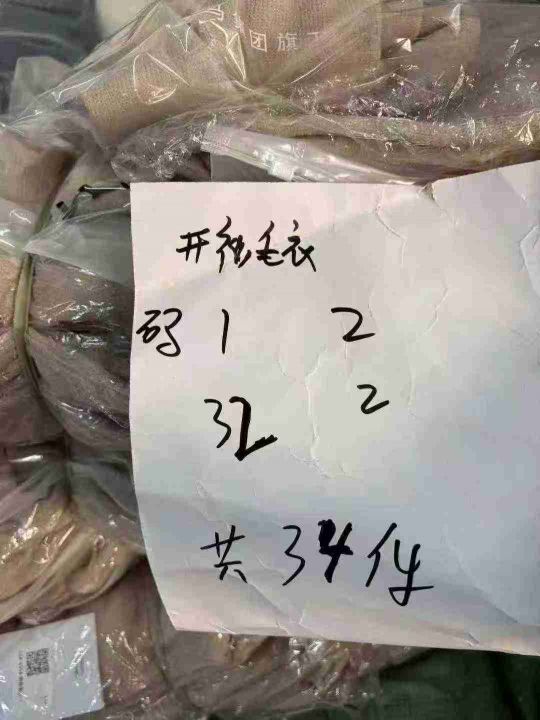 团旗下
开衫毛衣
码 1 2
32 2
共34件